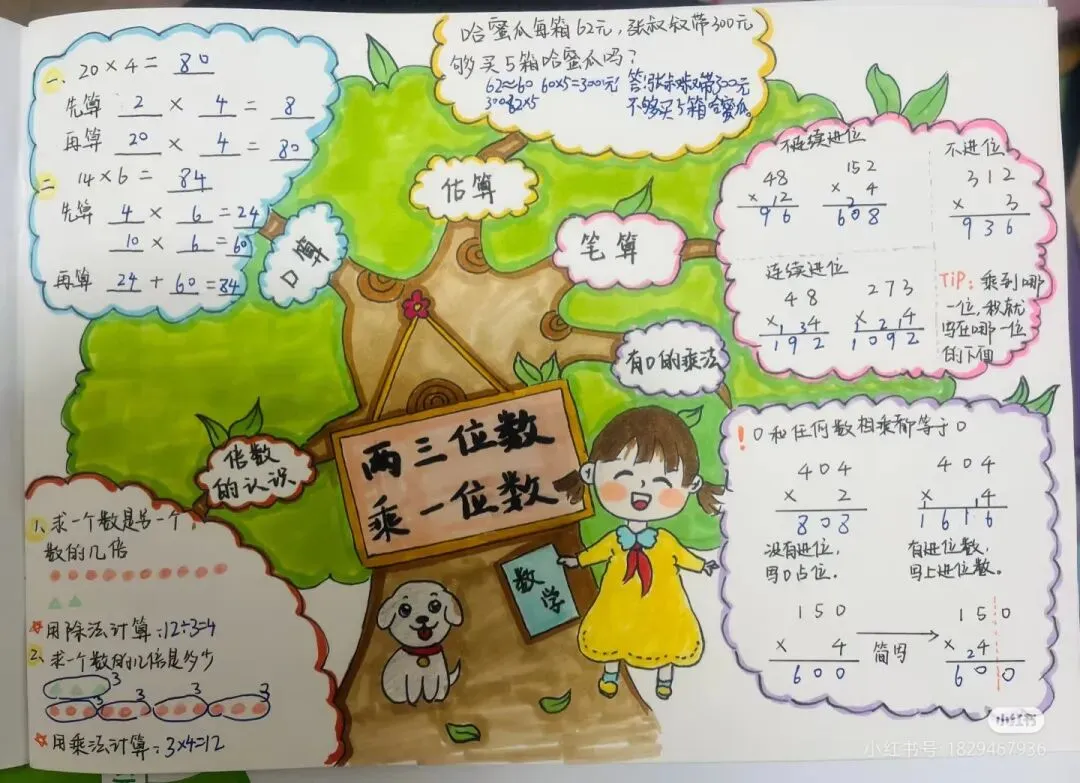 一、20×4= 80
先算 2 × 4 = 8
再算 20 × 4 = 80
二 14×6= 84
先算 4 × 6 =24
10 × 6 =60
再算 24 + 60 =84
口算
哈蜜瓜每箱62元,张叔叔带300元
够买5箱哈蜜瓜吗?
62≈60 60×5=300(元) 答:张叔叔带300元
300<62×5 不够买5箱哈蜜瓜。
估算
笔算
不连续进位
48
×12
96
152
× 2 4
608
不进位
312
× 3
936
连续进位
48
×134
192
273
×1214
1092
TiP:乘到哪
一位,我就
写在哪一位
的下面
有0的乘法
!0和任何数相乘都等于0
404
× 2
808
没有进位,
写0占位。
404
× 14
1616
有进位数,
写上进位数。
150
× 4
600
简写
150
×24
600
两三位数
乘一位数
数学
倍数
的认识
1、求一个数是另一个
数的几倍
用除法计算:12÷3=4
2、求一个数的几倍是多少
3
3 3 3 3
用乘法计算:3×4=12
小红书
小红书号:1829467936